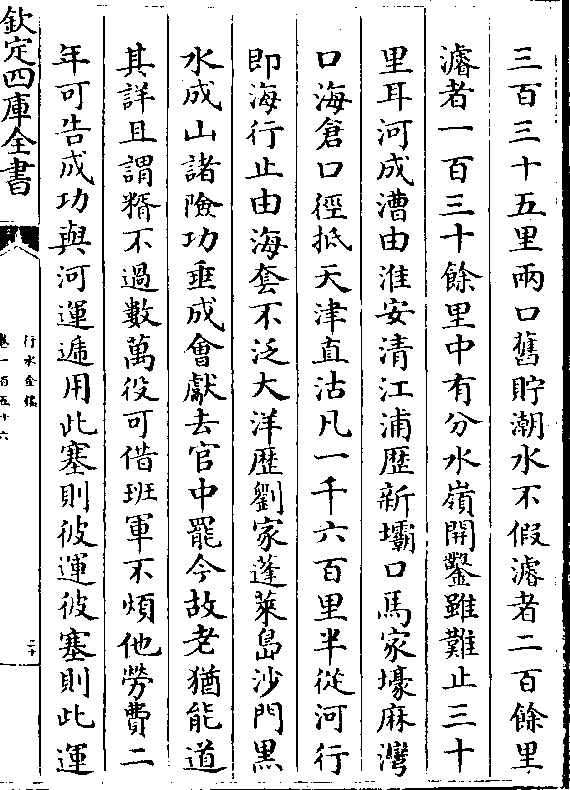 三百三十五里兩口舊貯潮水不假濬者二百餘里
濬者一百三十餘里中有分水嶺開鑿雖難止三十
里耳河成漕由淮安清江浦歷新壩口馬家壕麻灣
口海倉口徑抵天津直沽凡一千六百里半從河行
即海行止由海套不泛大洋歴劉家蓬萊島沙門黑
水成山諸險功垂成會獻去官中罷今故老猶能道
其詳且謂糈不過數萬役可借班軍不煩他勞費二
年可告成功與河運遞用此塞則彼運彼塞則此運
欽定四庫全書
行水金鑑
卷一百五十六
二十